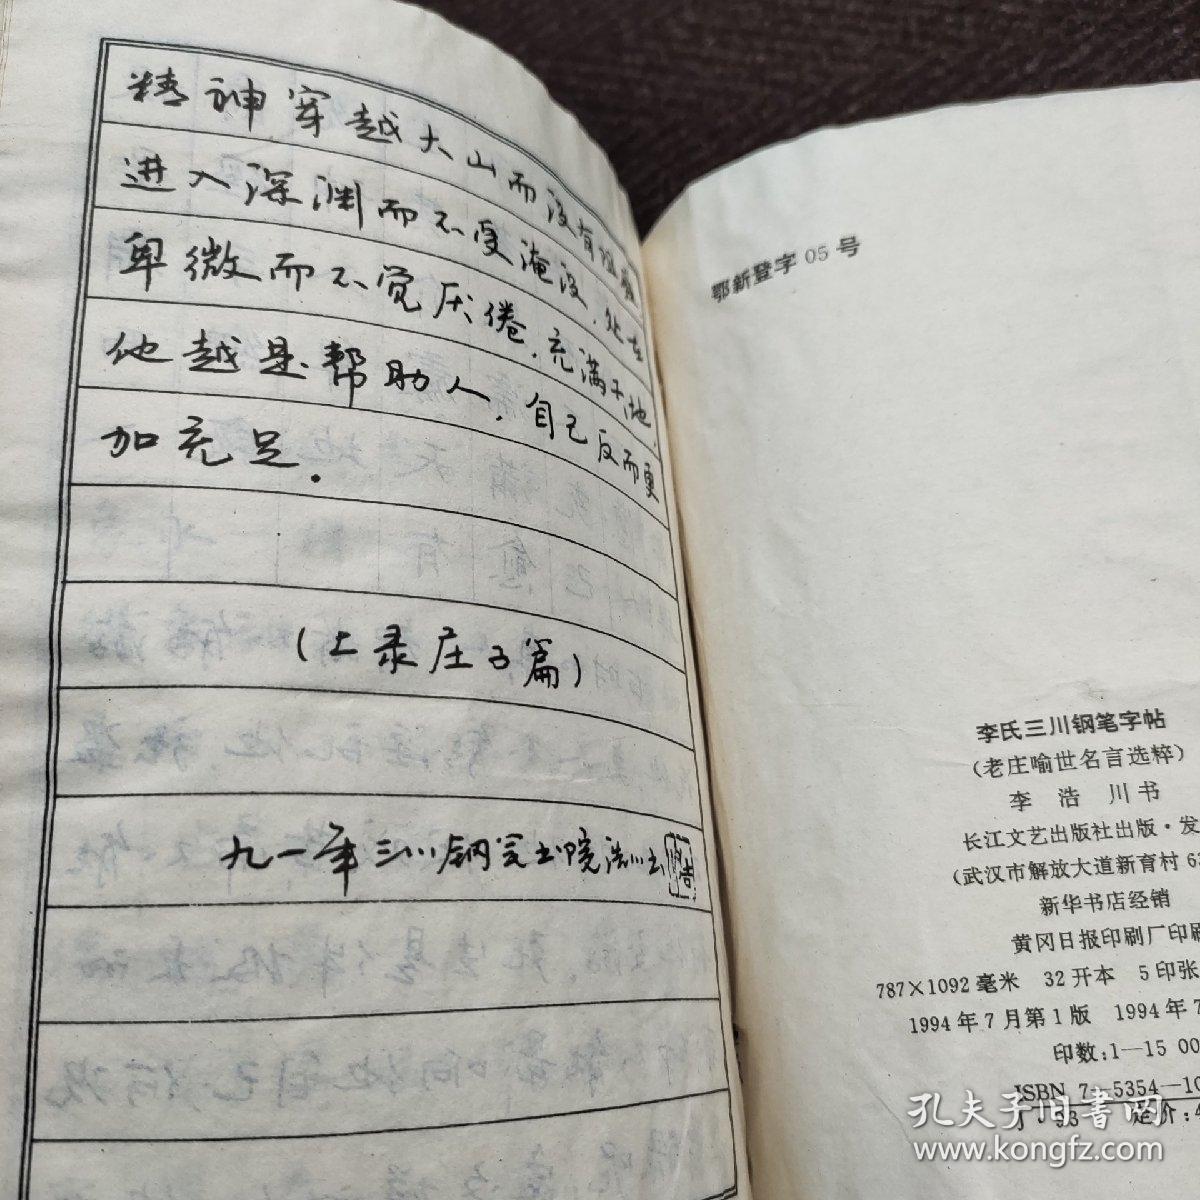 精神穿越大山而没有阻碍
进入深渊而不受淹没,处在
卑微而不觉厌倦,充满天地,
他越是帮助人,自己反而更
加充足.
(上录庄子篇)
九一年三川钢笔书院浩川书
鄂新登字05号
李氏三川钢笔字帖
(老庄喻世名言选粹)
李浩川书
长江文艺出版社出版·发
(武汉市解放大道新育村63
新华书店经销
黄冈日报印刷厂印刷
787×1092毫米 32开本 5印张
1994年7月第1版 1994年7
印数:1—15 00
ISBN 7-5354-10
J·93 定价:4
孔夫子旧书网
www.kongfz.com